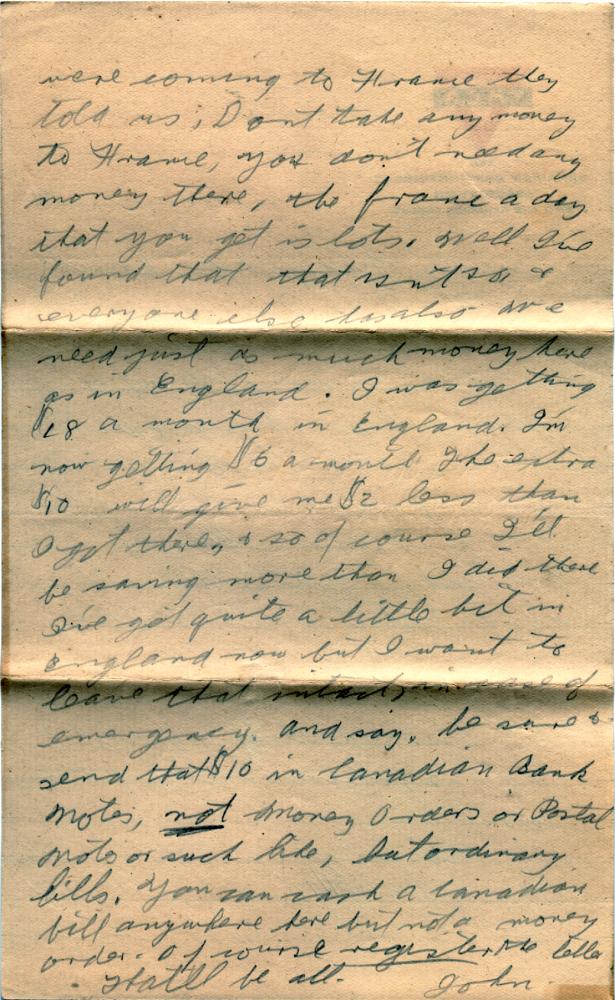 were coming to France they
told us, Dont take any money
to France, you don't need any
money there, the franc a day
that you get is lots. Well I've
found that that isn't so &
everyone else has also We
need just as much money here
as in England. I was getting
$18 a month in England. I'm
now getting $6 a month The extra
$10 will give me $2 less than
I got there, & so of course I'll
be saving more than I did there
I've got quite a little bit in
England now but I want to
leave that intact, in case of
emergency. And say, be sure &
send that $10 in Canadian Bank
Notes, not Money Orders or Postal
Notes or such like, but ordinary
bills. You can cash a Canadian
bill anywhere here but not a money
order. Of course register the letter
That'll be all. John.